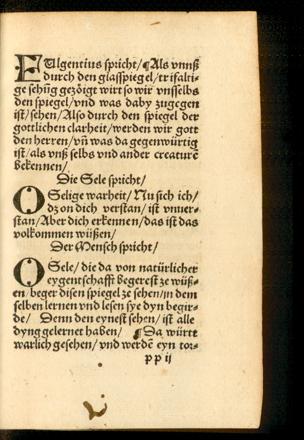 FUlgentius spricht/ ¶Als vnnß
durch den glasspiegel/trifalti-
ge sehūg gezöigt wirt so wir vnsselbs
den spiegel/vnd was daby zugegen
ist/sehen/Also durch den spiegel der
gottlichen clarheit/werden wir gott
den herren/vñ was da gegenwürtig
ist/als vnß selbs vnd ander creaturē
bekennen/
Die Sele spricht/
O Selige warheit/Nu sich ich/
dz on dich verstan/ist vnuer-
stan/Aber dich erkennen/das ist das
volkommen wüßen/
Der Mensch spricht/
O Sele/die da von natürlicher
eygentschafft begerest ze wüß-
en/beger disen spiegel ze sehen/in dem
selben lernen vnd lesen sye dyn begir-
de/ Denn den eynest sehen/ist alle
dyng gelernet haben/ ¶Da württ
warlich gesehen/vnd werdē eyn tor-
pp ij